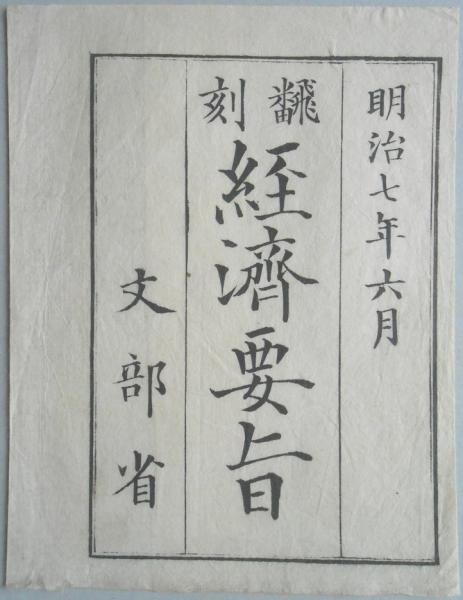 明治七年六月
飜刻
経濟要旨
文部省